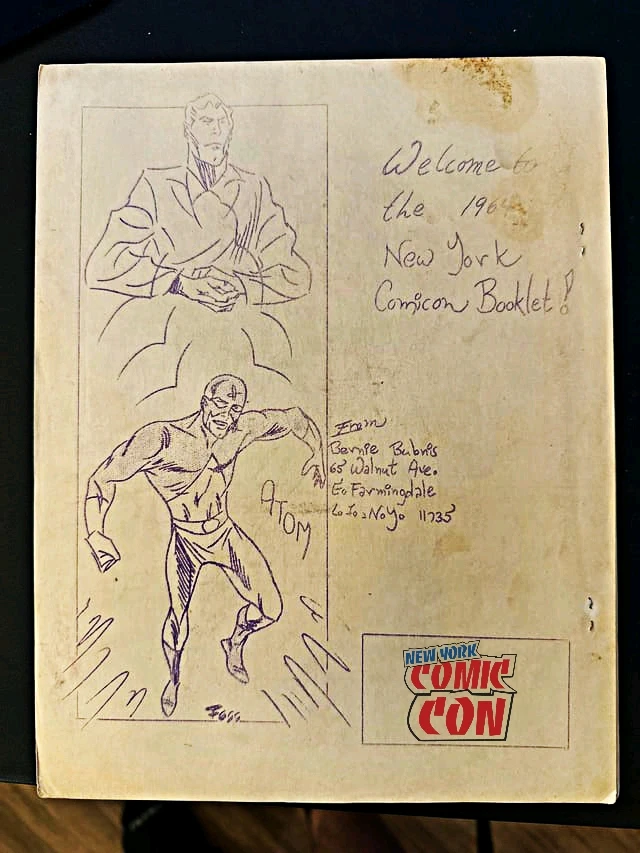 Welcome to
the 1964
New York
Comicon Booklet!
From
Bernie Bubnis
65 Walnut Ave.
E. Farmingdale
L. I., N. Y. 11735
ATOM
NEW YORK
COMIC
CON